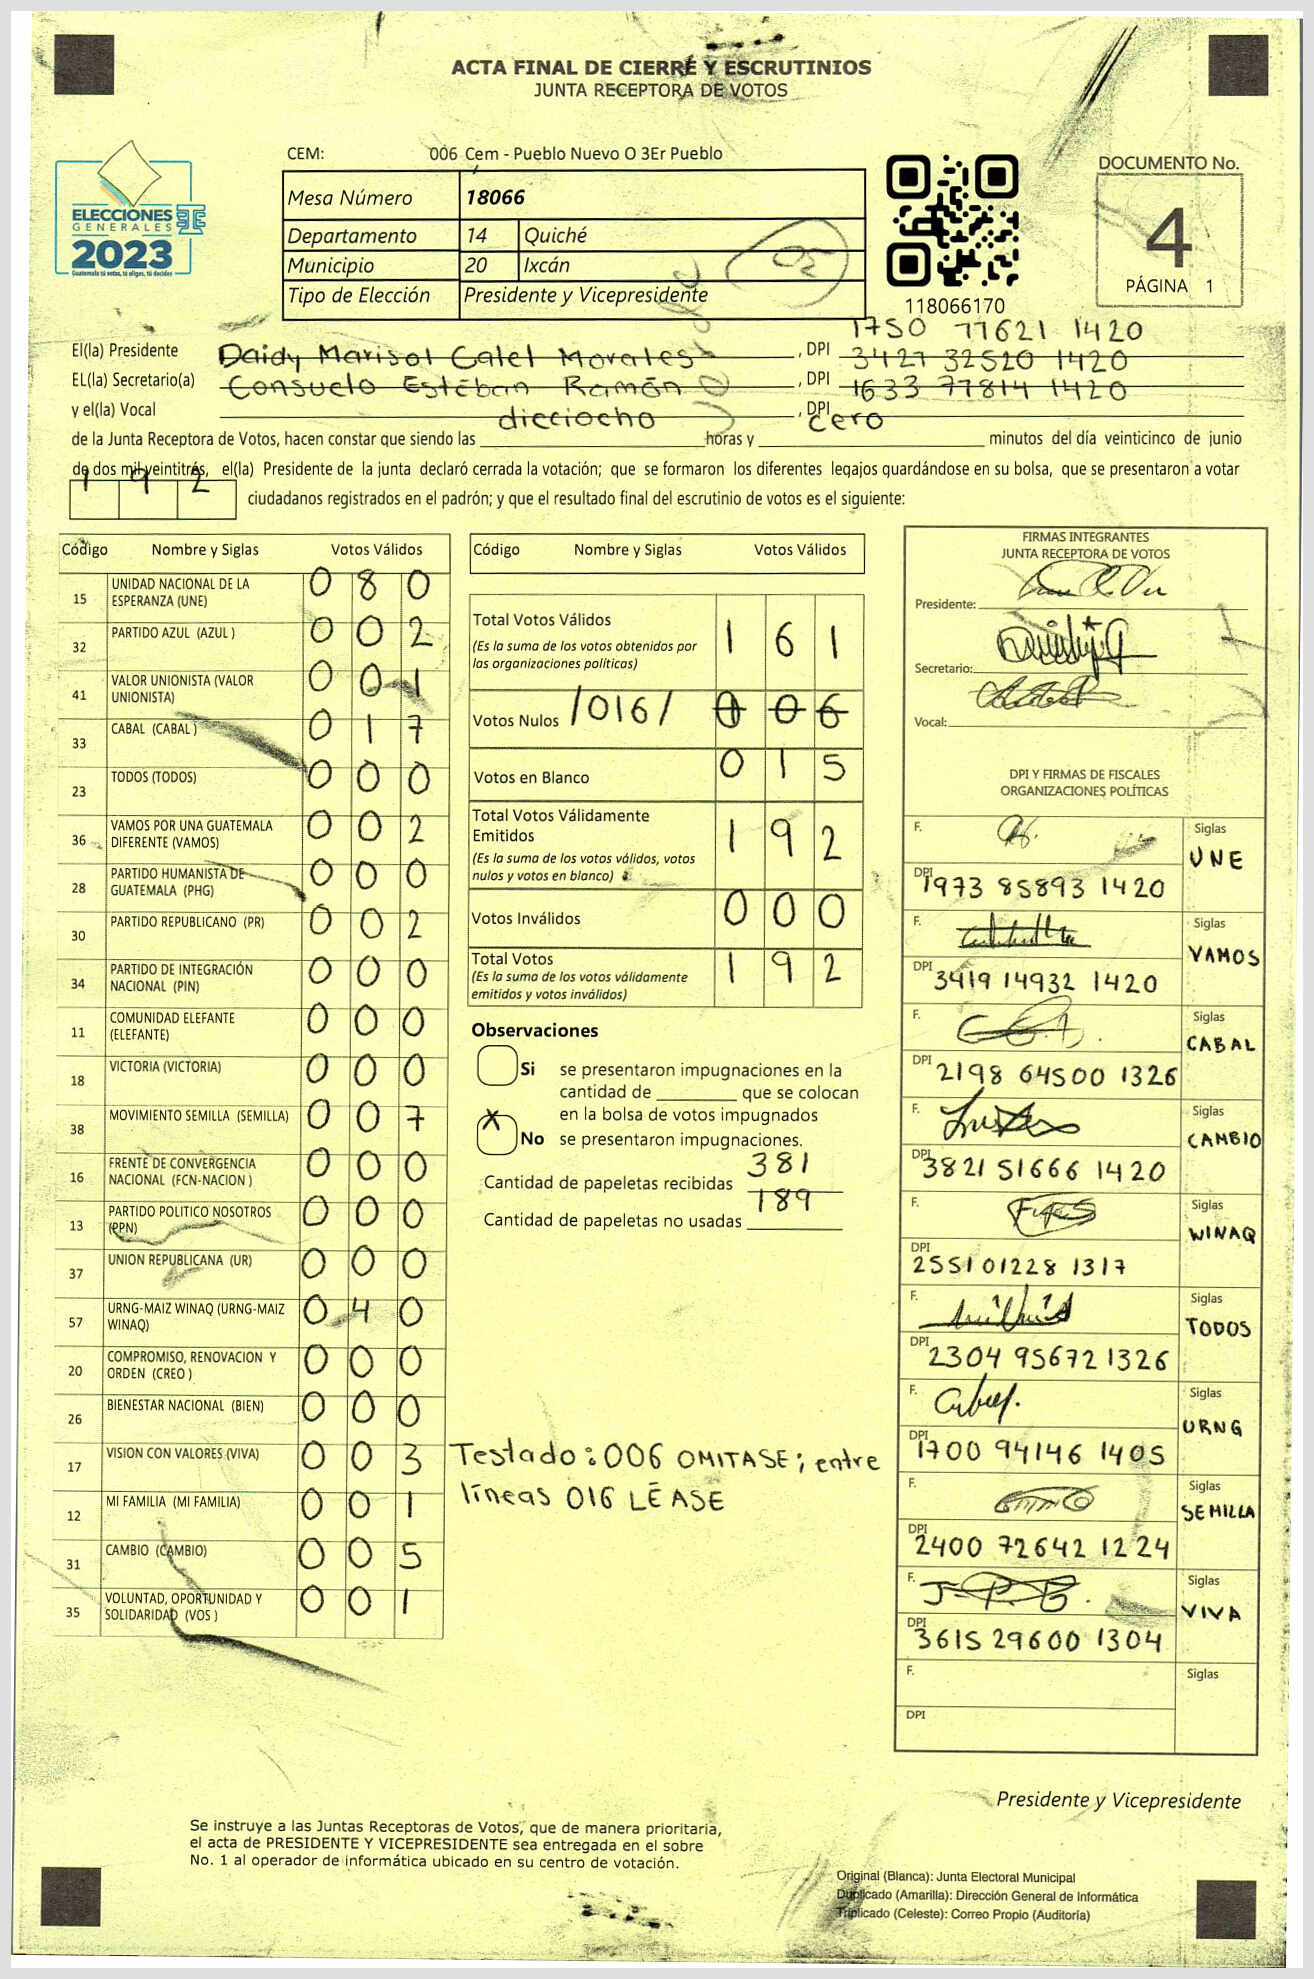 ACTA FINAL DE CIERRE Y ESCRUTINIOS
JUNTA RECEPTORA DE VOTOS
CEM: 006 Cem - Pueblo Nuevo O 3Er Pueblo
DOCUMENTO No.
4
PÁGINA 1
ELECCIONES
GENERALES
2023
Guatemala tú votas, tú eliges, tú decides
Mesa Número 18066
Departamento 14 Quiché
Municipio 20 Ixcán
Tipo de Elección Presidente y Vicepresidente
118066170
1750 77621 1420
El(la) Presidente Daidy Marisol Calel Morales , DPI 3427 32520 1420
EL(la) Secretario(a) Consuelo Estéban Ramón , DPI 1633 77814 1420
y el(la) Vocal , DPI
dicciocho cero
de la Junta Receptora de Votos, hacen constar que siendo las horas y minutos del día veinticinco de junio
de dos mil veintitrés, el(la) Presidente de la junta declaró cerrada la votación; que se formaron los diferentes legajos guardándose en su bolsa, que se presentaron a votar
192 ciudadanos registrados en el padrón; y que el resultado final del escrutinio de votos es el siguiente:
Código Nombre y Siglas Votos Válidos
15 UNIDAD NACIONAL DE LA ESPERANZA (UNE) 0 8 0
32 PARTIDO AZUL (AZUL ) 0 0 2
41 VALOR UNIONISTA (VALOR UNIONISTA) 0 0 1
33 CABAL (CABAL ) 0 1 7
23 TODOS (TODOS) 0 0 0
36 VAMOS POR UNA GUATEMALA DIFERENTE (VAMOS) 0 0 2
28 PARTIDO HUMANISTA DE GUATEMALA (PHG) 0 0 0
30 PARTIDO REPUBLICANO (PR) 0 0 2
34 PARTIDO DE INTEGRACIÓN NACIONAL (PIN) 0 0 0
11 COMUNIDAD ELEFANTE (ELEFANTE) 0 0 0
18 VICTORIA (VICTORIA) 0 0 0
38 MOVIMIENTO SEMILLA (SEMILLA) 0 0 7
16 FRENTE DE CONVERGENCIA NACIONAL (FCN-NACION ) 0 0 0
13 PARTIDO POLITICO NOSOTROS (PPN) 0 0 0
37 UNION REPUBLICANA (UR) 0 0 0
57 URNG-MAIZ WINAQ (URNG-MAIZ WINAQ) 0 4 0
20 COMPROMISO, RENOVACION Y ORDEN (CREO ) 0 0 0
26 BIENESTAR NACIONAL (BIEN) 0 0 0
17 VISION CON VALORES (VIVA) 0 0 3
12 MI FAMILIA (MI FAMILIA) 0 0 1
31 CAMBIO (CAMBIO) 0 0 5
35 VOLUNTAD, OPORTUNIDAD Y SOLIDARIDAD (VOS ) 0 0 1
Código Nombre y Siglas Votos Válidos
Total Votos Válidos 1 6 1
(Es la suma de los votos obtenidos por
las organizaciones políticas)
Votos Nulos /016/ 0 0 6
Votos en Blanco 0 1 5
Total Votos Válidamente
Emitidos 1 9 2
(Es la suma de los votos válidos, votos
nulos y votos en blanco)
Votos Inválidos 0 0 0
Total Votos 1 9 2
(Es la suma de los votos válidamente
emitidos y votos inválidos)
Observaciones
Si se presentaron impugnaciones en la
cantidad de que se colocan
en la bolsa de votos impugnados
X No se presentaron impugnaciones.
Cantidad de papeletas recibidas 381
Cantidad de papeletas no usadas 189
Testado: 006 OMITASE; entre
líneas 016 LÉASE
FIRMAS INTEGRANTES
JUNTA RECEPTORA DE VOTOS
Presidente:
Secretario:
Vocal:
DPI Y FIRMAS DE FISCALES
ORGANIZACIONES POLÍTICAS
F. Siglas UNE
DPI 1973 85893 1420
F. Siglas VAMOS
DPI 3419 14932 1420
F. Siglas CABAL
DPI 2198 64500 1326
F. Siglas CAMBIO
DPI 3821 51666 1420
F. Siglas WINAQ
DPI 2551 01228 1317
F. Siglas TODOS
DPI 2304 95672 1326
F. Siglas URNG
DPI 1700 94146 1405
F. Siglas SEMILLA
DPI 2400 72642 1224
F. Siglas VIVA
DPI 3615 29600 1304
F. Siglas
DPI
Presidente y Vicepresidente
Se instruye a las Juntas Receptoras de Votos, que de manera prioritaria,
el acta de PRESIDENTE Y VICEPRESIDENTE sea entregada en el sobre
No. 1 al operador de informática ubicado en su centro de votación.
Original (Blanca): Junta Electoral Municipal
Duplicado (Amarilla): Dirección General de Informática
Triplicado (Celeste): Correo Propio (Auditoría)